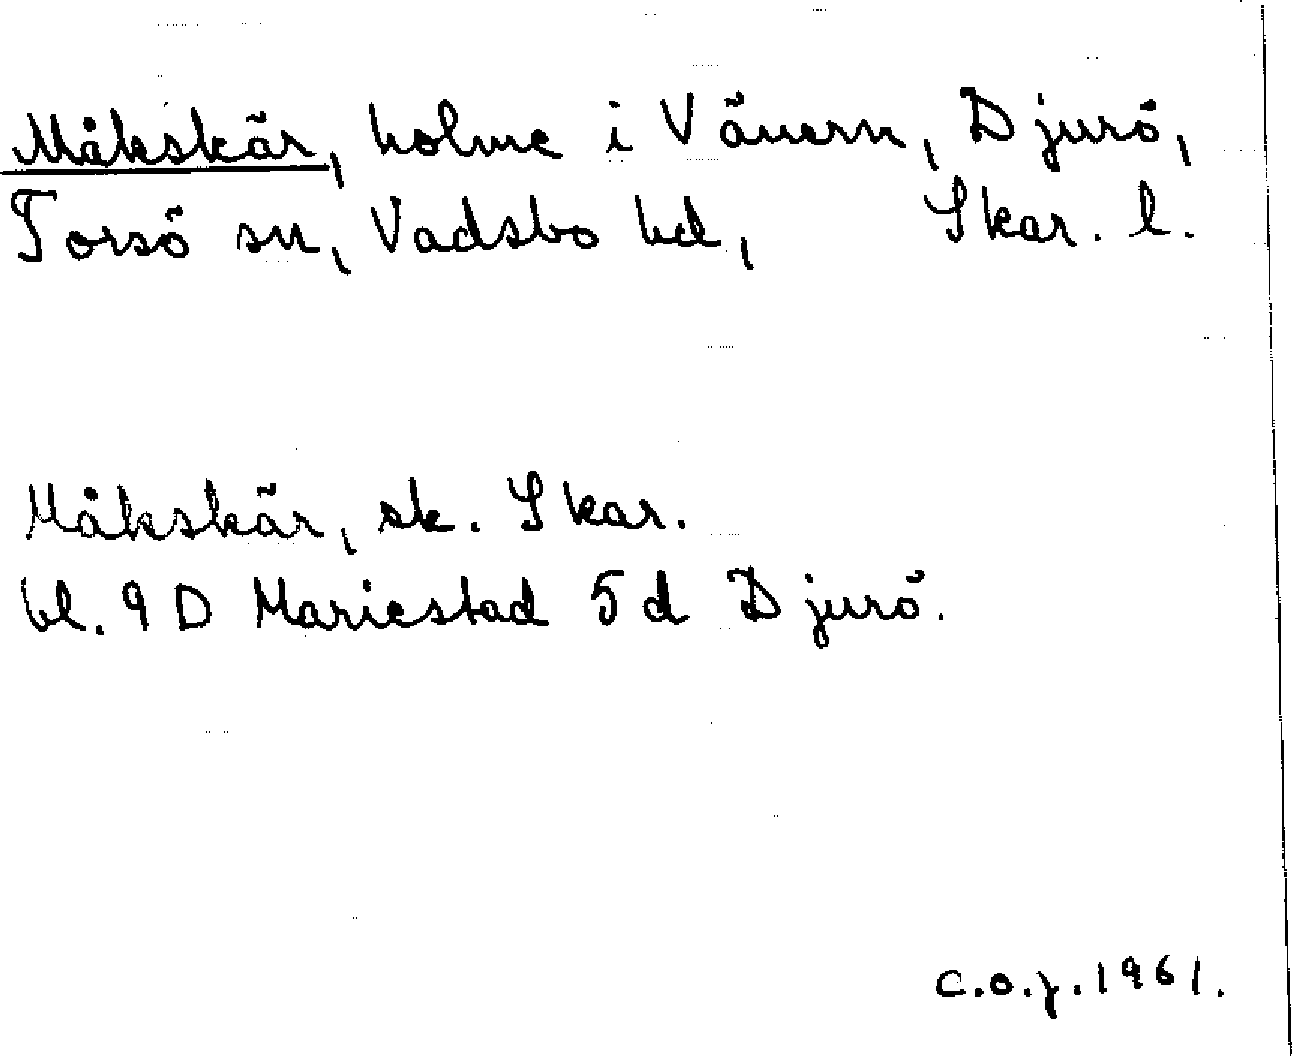 Måkskär, holme i Vänern, Djurö,
Torsö sn, Vadsbo hd, Skar. l.
Måkskär, sk. Skar.
bl. 9 D Mariestad 5 d Djurö.
C.o.j. 1961.